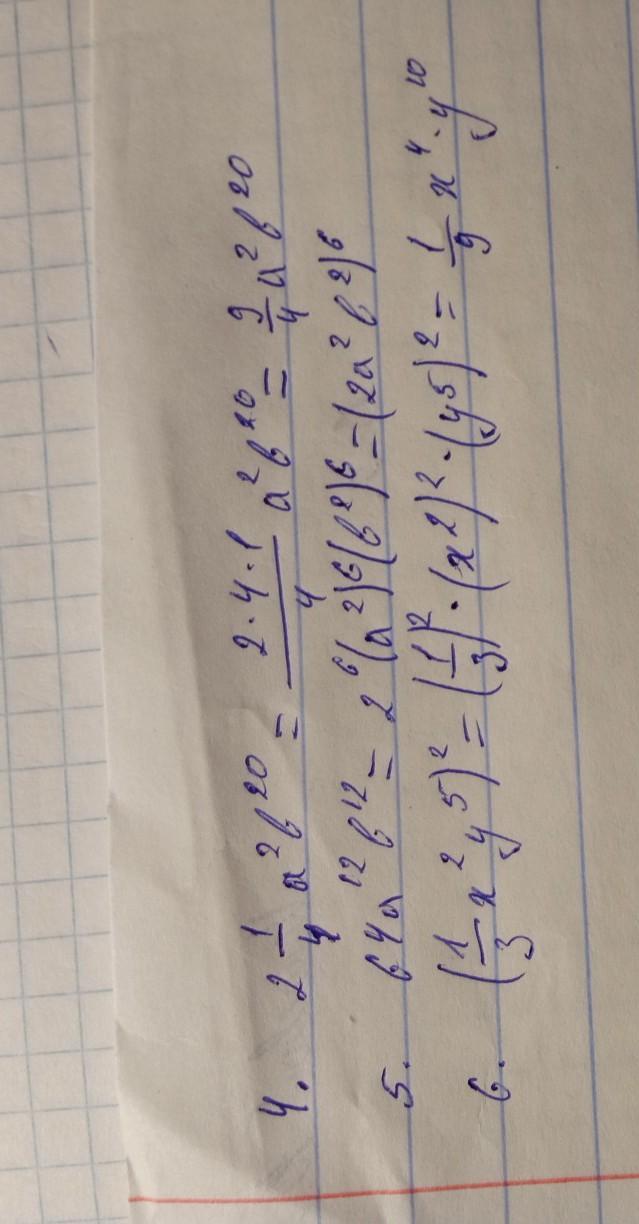 4. 2 1/4 a²b²⁰ = 2·4·1/4 a²b²⁰ = 9/4 a²b²⁰
5. 64a¹²b¹² = 2⁶(a²)⁶(b²)⁶ = (2a²b²)⁶
6. (1/3 x²y⁵)² = (1/3)²·(x²)²·(y⁵)² = 1/9 x⁴·y¹⁰